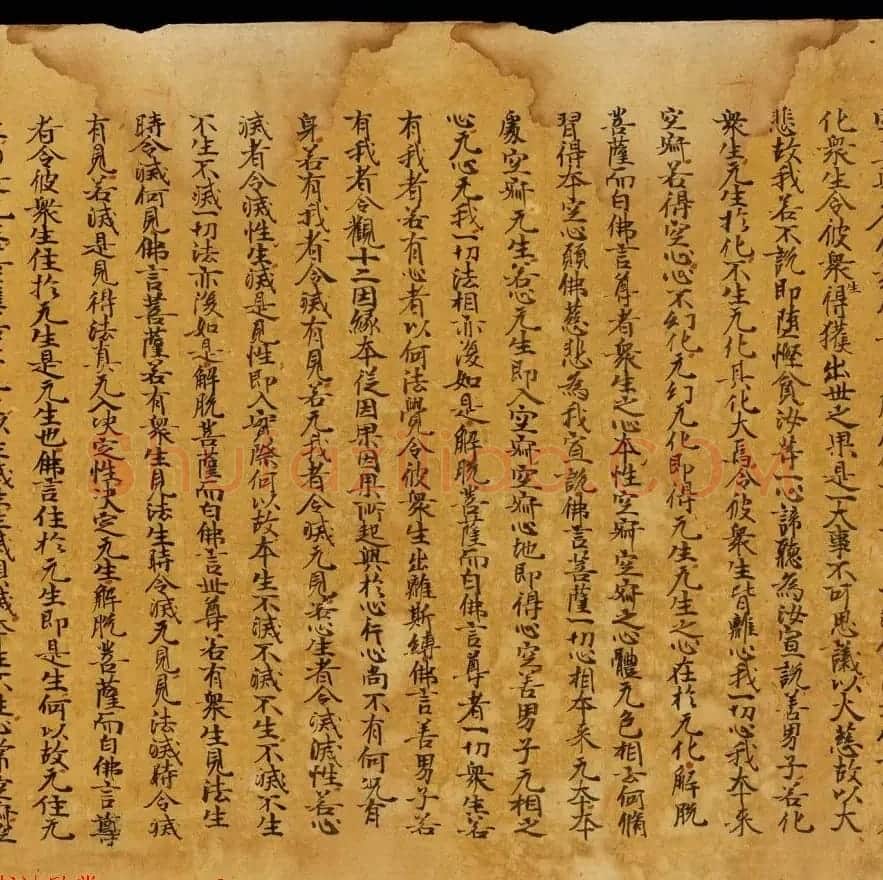 化衆生令彼衆生得獲出世之果是一大事不可思議以大慈故以大
悲故我若不說即墮慳貪汝等一心諦聽為汝宣說善男子若化
衆生无生於化不生无化其化大焉令彼衆生皆離心我一切心我本来
空寂若得空心心不幻化无幻无化即得无生无生之心在於无化解脫
菩薩而白佛言尊者衆生之心本性空寂空寂之心體无色相云何脩
習得本空心願佛慈悲為我宣說佛言菩薩一切心相本来无本本
處空寂无生若心无生即入空寂空寂心地即得心空善男子无相之
心无心无我一切法相亦復如是解脫菩薩而白佛言尊者一切衆生若
有我者若有心者以何法覺令彼衆生出離斯縛佛言善男子若
有我者令觀十二因緣本從因果因果所起興於心行心尚不有何況有
身若有我者令滅有見若无我者令滅无見若心生者令滅滅性若心
滅者令滅性生滅是見性即入實際何以故本生不滅不滅不生不滅不生
不生不滅一切法亦復如是解脫菩薩而白佛言世尊若有衆生見法生
時令滅何見佛言菩薩若有衆生見法生時令滅无見見法滅時令滅
有見若滅是見得法真无入决定性决定无生解脫菩薩而白佛言尊
者令彼衆生住於无生是无生也佛言住於无生即是生何以故无住无
Shufaziliao.COM